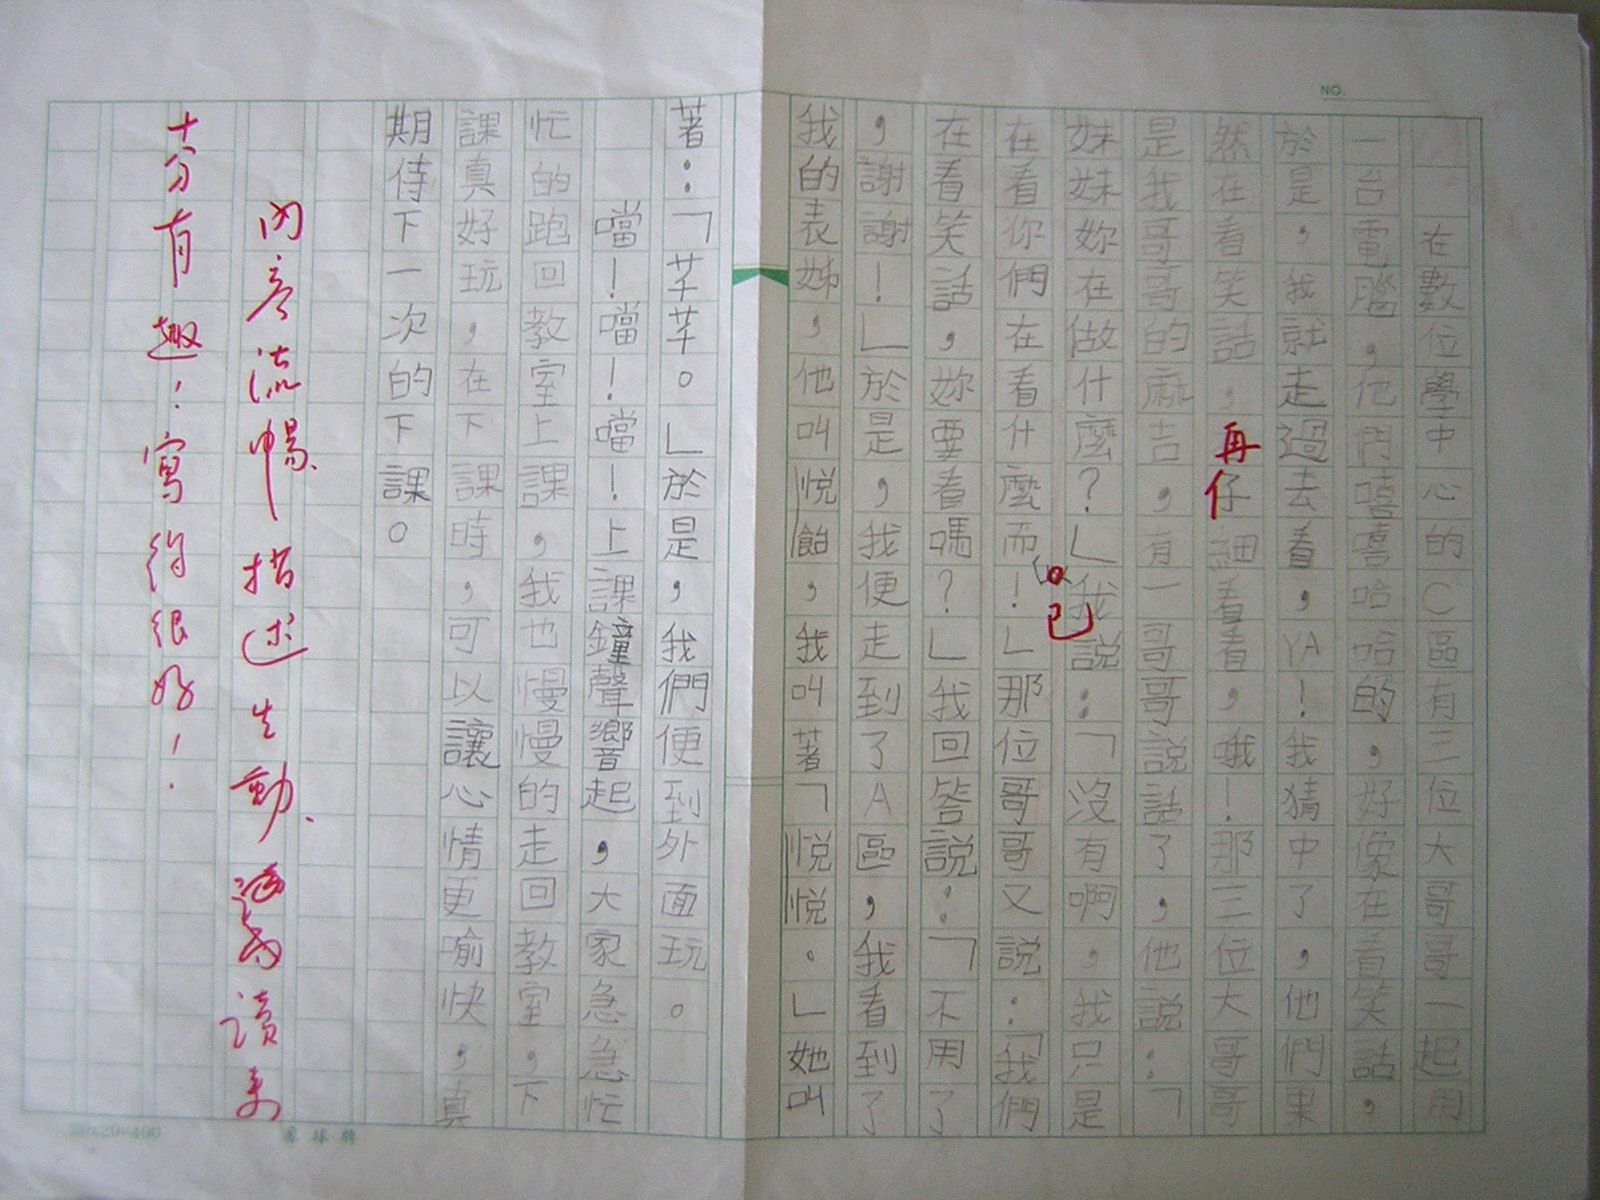 NO.
在數位學中心的C區有三位大哥哥一起用
一台電腦，他們嘻嘻哈哈的，好像在看笑話，
於是，我就走過去看，YA！我猜中了，他們果
然在看笑話，再仔細看看，哦！那三位大哥哥
是我哥哥的麻吉，有一哥哥說話了，他說：「
妹妹妳在做什麼？」我說：「沒有啊，我只是
在看你們在看什麼而已！」那位哥哥又說：「我們
在看笑話，妳要看嗎？」我回答說：「不用了
，謝謝！」於是，我便走到了A區，我看到了
我的表姊，他叫悅飴，我叫著「悅悅。」她叫
著：「芊芊。」於是，我們便到外面玩。
噹！噹！噹！上課鐘聲響起，大家急急忙
忙的跑回教室上課，我也慢慢的走回教室，下
課真好玩，在下課時，可以讓心情更愉快，真
期待下一次的下課。
內容流暢、描述生動、讀來
十分有趣！寫得很好！
20x20=400